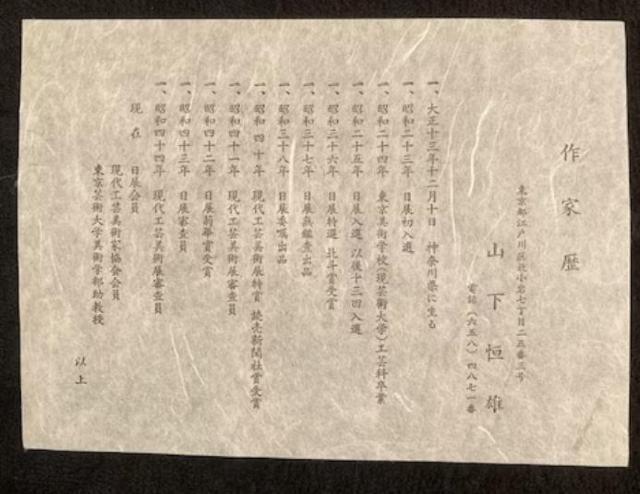 作家歴
東京都江戸川区北小岩七丁目二五番三号
山下恒雄
電話（六五八）四八七一番
一、大正十三年十二月十日　神奈川県に生る
一、昭和二十三年　日展初入選
一、昭和二十四年　東京美術学校（現芸術大学）工芸科卒業
一、昭和二十五年　日展入選　以後十二回入選
一、昭和三十六年　日展特選　北斗賞受賞
一、昭和三十七年　日展無鑑査出品
一、昭和三十八年　日展委嘱出品
一、昭和四十年　現代工芸美術展特賞　読売新聞社賞受賞
一、昭和四十一年　現代工芸美術展審査員
一、昭和四十二年　日展菊華賞受賞
一、昭和四十三年　日展審査員
一、昭和四十四年　現代工芸美術展審査員
現在　日展会員
現代工芸美術家協会会員
東京芸術大学美術学部助教授
以上